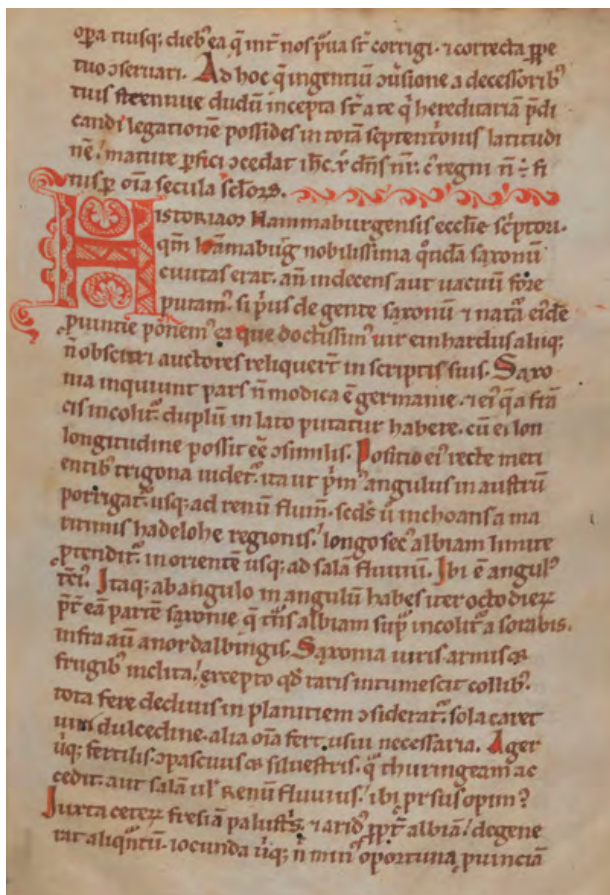 opa tiusq; dieb' ea q̄ int nos p̱ua st̄ corrigi · ⁊ correcta ꝑpe
tuo ↄseruari. Ad hoc q̄ ingentiū ↄūsione a decessorib'
tuis strennue dudū incepta st̄ a te q̄ hereditariā p̄di
candi legationē possides in totā septentrionis latitudi
nē. mature ꝑfici ↄcedat ih̄c. xp̄ dn̄s nr̄. c᷎ regni n̄ ÷ fi
nis ꝑ oīa secula sclōꝝ.
HISTORIAM Hammaburgensis ecclīe sc̄ptori.
qm̄ hāmaburg nobilissima qōndā saxonū
ciuitas erat. aū indecens aut uacuū fore
putam'. si p̱us de gente saxonū ⁊ natā eide
ꝓuintie pōnem' ea que doctissim' uir einhardus aliiq;
n̄ obscuri auctores reliquert̄ in scriptis suis. Saxo
nia inquiunt pars n̄ modica ē germanie. ⁊ ei' q̄ a frā
cis incolit̄. duplū in lato putatur habere. cū ei lon
longitudine possit eē ↄsimilis. Positio ei' recte meti
entib' trigona uidet̄. ita ut p̱m' angulus in austrū
porrigat̄. usq; ad renū flum̄. scds̄ ū inchoans a ma
ritimis hadelohe regionis. longo sec' albiam limite
ꝓtendit̄. in orientē usq; ad salā fluuiū. Ibi ē angul'
tc̄i'. Itaq; ab angulo in angulū habes iter octo dieꝝ
p̄t eā partē saxonie q̄ tn̄s albiam sup̱ incolit̄ a sorabis.
infra aū a nordalbingis. Saxonia uiris armis &
frugib' inclita. excepto qd̄ raris intumescit collib'.
tota fere decliuis in planitiem ↄsiderat̄. sola caret
uini dulcedine. alia oīa fert usui necessaria. Ager
ūq; fertilis. ↄpascuus & siluestris. q̄ thuringeam ac
cedit. aut salā ul' Renū fluuius. ibi prsus opim?
Iuxta ceteꝝ fresiā palustis. ⁊ arid' ꝓpt̄ albiā. degene
rat aliqn̄tū. iocunda ūq; n̄ min' oportuna ꝓuinciā